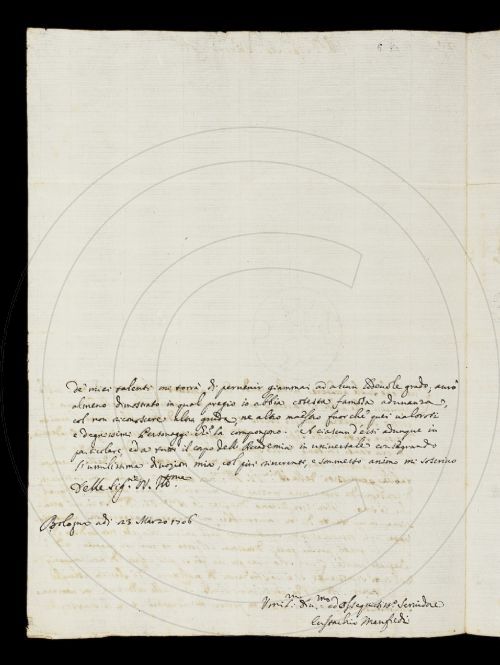 de' miei talenti mi torrà di pervenir giammai ad alcun lodevole grado, avrò
almeno dimostrato in qual pregio io abbia cotesta famosa adunanza,
col non riconoscere altra guida, ne altro fuor che quei valorosi
e degnissimi Personaggi che la compongono. A ciascun d'essi adunque in
particolare, ed a tutto il corpo dell'Accademia in universale consagrando
l'umilissima divozion mia, col più sincero, e sommesso animo mi soscrivo
Delle Sig.rie V. Ill.me
Bologna adì 23 Marzo 1706
Umil.mo Div.mo ed Ossequios.mo Servidore
Eustachio Manfredi